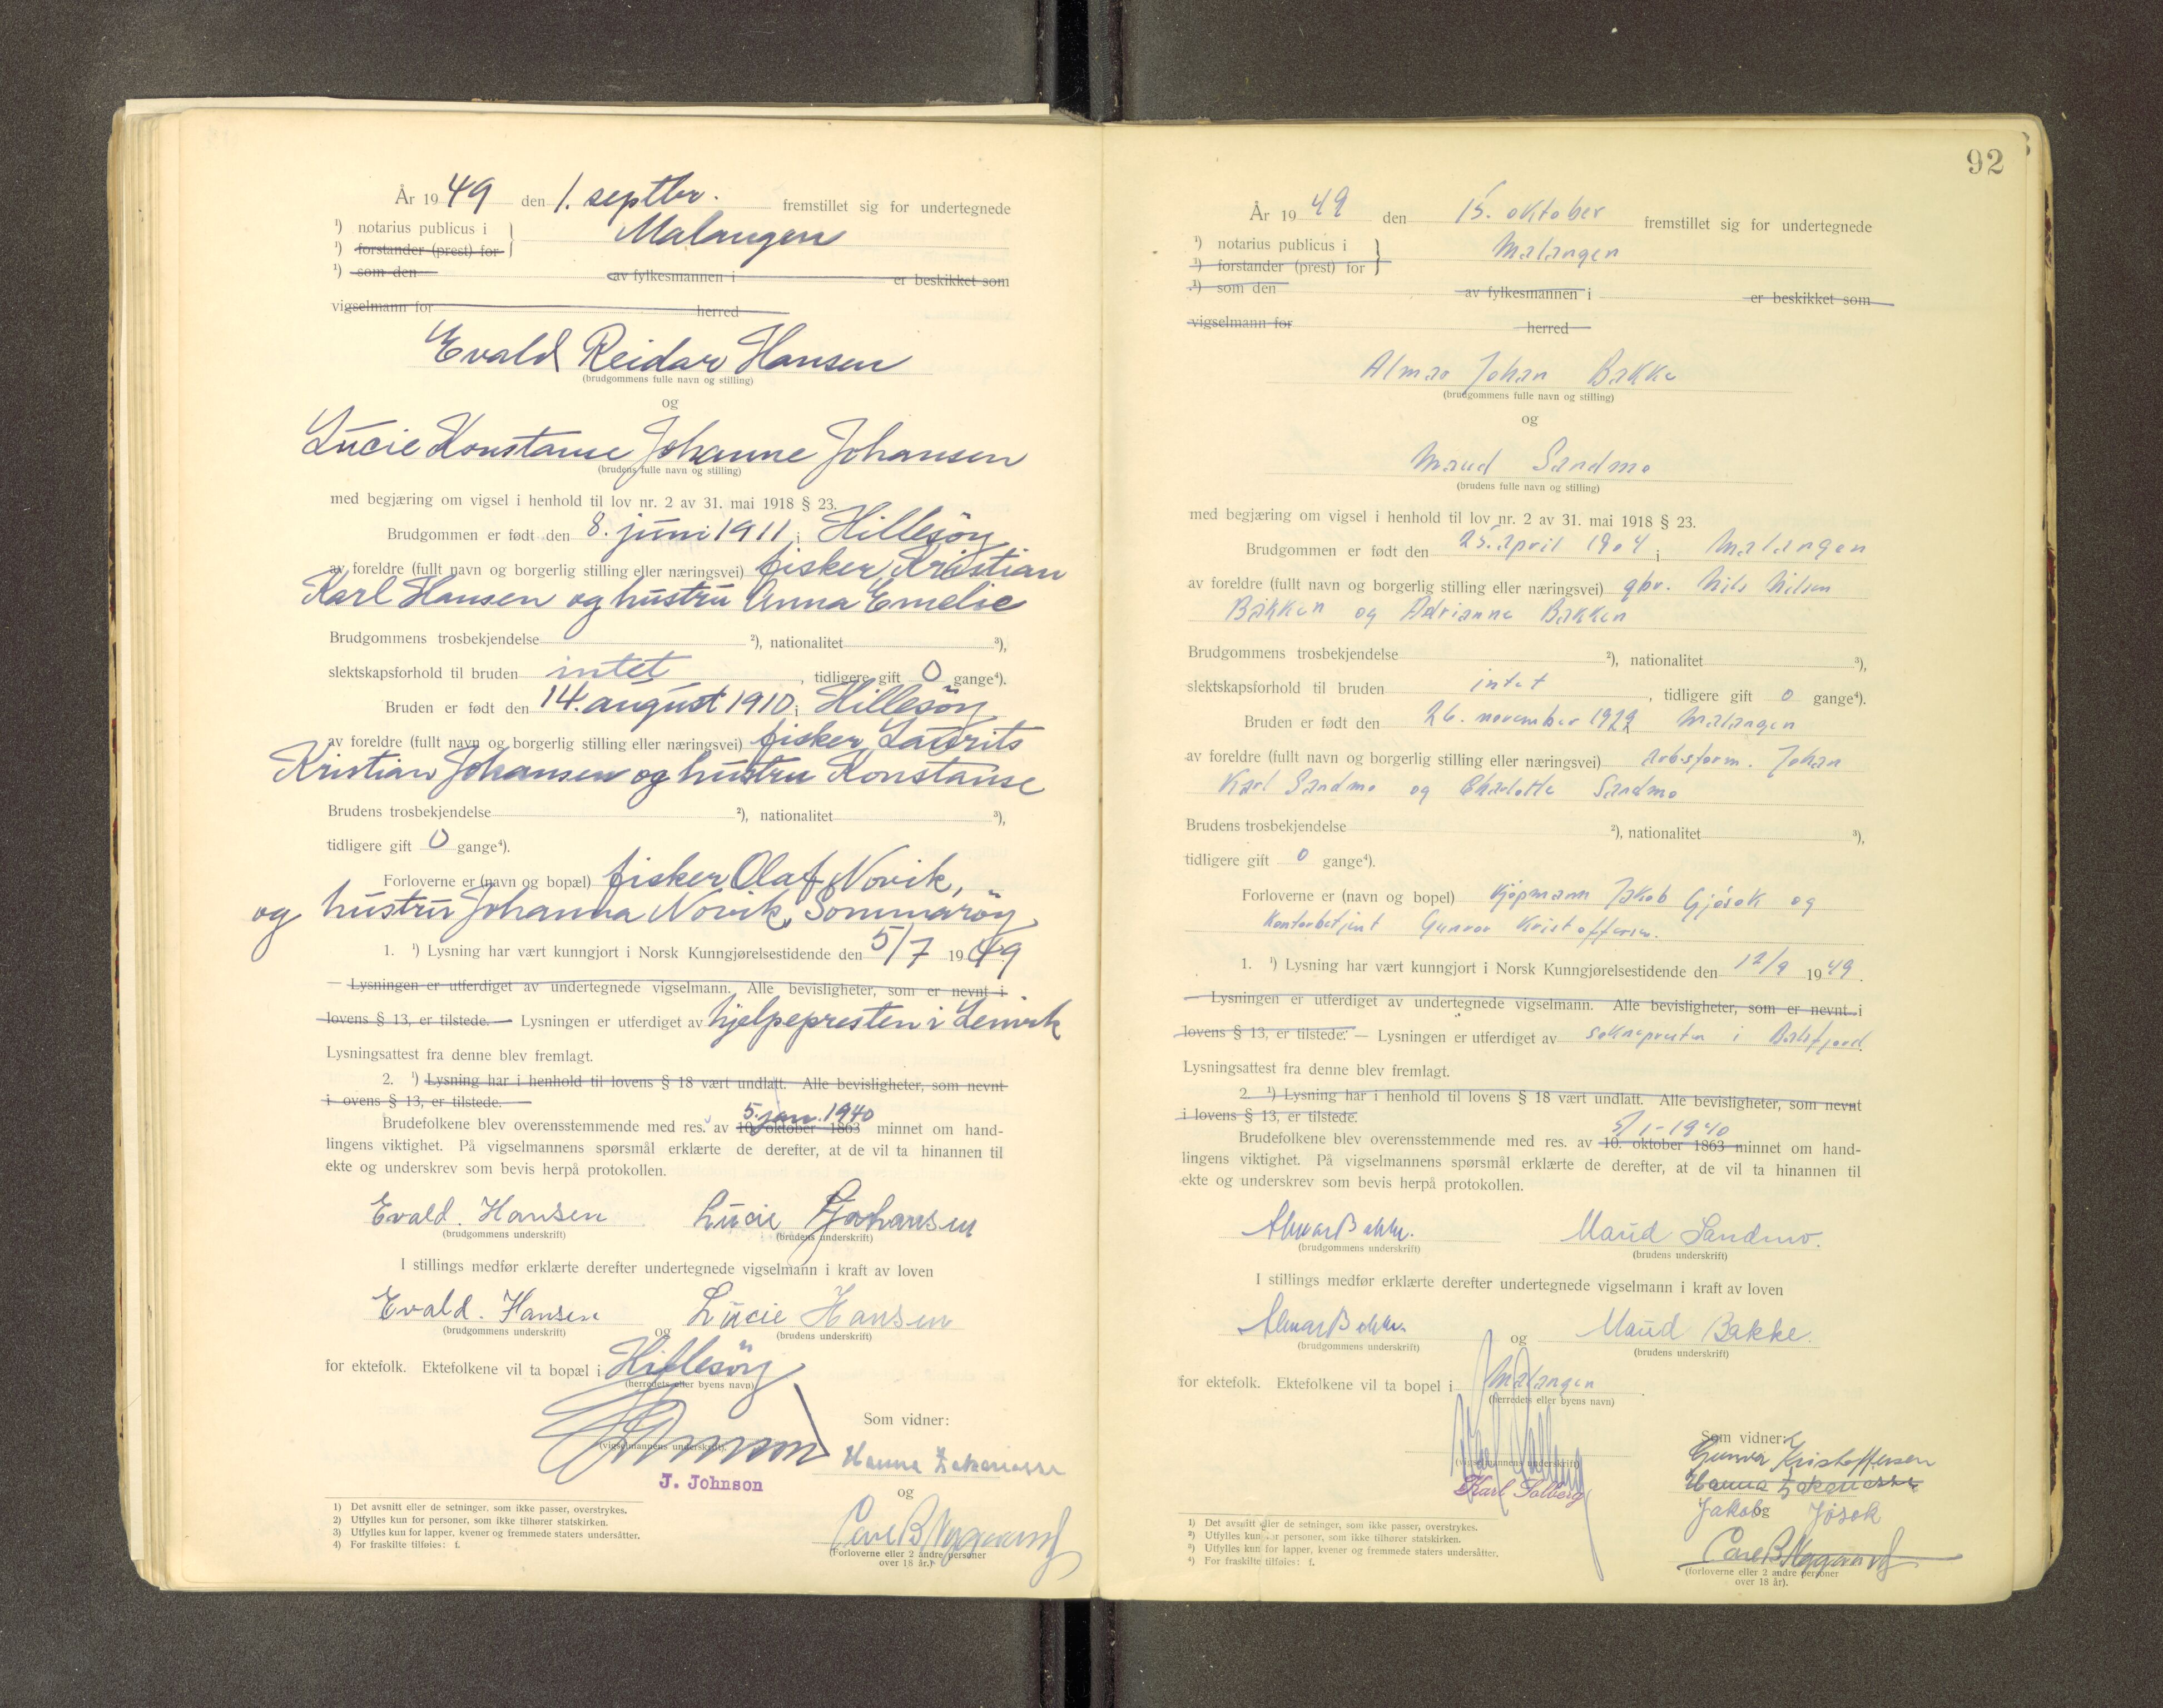 År 1949 den 1. septbr. fremstillet sig for undertegnede
¹) notarius publicus i } Malangen
¹) forstander (prest) for
¹) som den av fylkesmannen i er beskikket som
vigselmann for herred
Evald Reidar Hansen
(brudgommens fulle navn og stilling)
og
Lucie Konstanse Johanne Johansen
(brudens fulle navn og stilling)
med begjæring om vigsel i henhold til lov nr. 2 av 31. mai 1918 § 23.
Brudgommen er født den 8. juni 1911 i Hillesöy
av foreldre (fullt navn og borgerlig stilling eller næringsvei) fisker Kristian
Karl Hansen og hustru Anna Emelie
Brudgommens trosbekjendelse ²), nationalitet ³),
slektskapsforhold til bruden intet, tidligere gift 0 gange⁴).
Bruden er født den 14. august 1910 i Hillesöy
av foreldre (fullt navn og borgerlig stilling eller næringsvei) fisker Laurits
Kristian Johansen og hustru Konstanse
Brudens trosbekjendelse ²), nationalitet ³),
tidligere gift 0 gange⁴).
Forloverne er (navn og bopæl) fisker Olaf Novik,
og hustru Johanna Novik, Sommaröy
1. ¹) Lysning har vært kunngjort i Norsk Kunngjørelsestidende den 5/7 1949
— Lysningen er utferdiget av undertegnede vigselmann. Alle bevisligheter, som er nevnt i
lovens § 13, er tilstede. — Lysningen er utferdiget av hjelpepresten i Lenvik
Lysningsattest fra denne blev fremlagt.
2. ¹) Lysning har i henhold til lovens § 18 vært undlatt. Alle bevisligheter, som nevnt
i ovens § 13, er tilstede.
5. jan. 1940
Brudefolkene blev overensstemmende med res. av 10. oktober 1863 minnet om hand-
lingens viktighet. På vigselmannens spørsmål erklærte de derefter, at de vil ta hinannen til
ekte og underskrev som bevis herpå protokollen.
Evald. Hansen Lucie Johansen
(brudgommens underskrift) (brudens underskrift)
I stillings medfør erklærte derefter undertegnede vigselmann i kraft av loven
Evald. Hansen og Lucie Hansen
(brudgommens underskrift) (brudens underskrift)
for ektefolk. Ektefolkene vil ta bopæl i Hillesöy
(herredets eller byens navn)
Som vidner:
Johnson
(vigselmannens underskrift).
Hanna Zakariassen
J. Johnson
og
(Forloverne eller 2 andre personer
over 18 år.)
1) Det avsnitt eller de setninger, som ikke passer, overstrykes.
2) Utfylles kun for personer, som ikke tilhører statskirken.
3) Utfylles kun for lapper, kvener og fremmede staters undersåtter.
4) For fraskilte tilføies: f.
92
År 1949 den 15. oktober fremstillet sig for undertegnede
¹) notarius publicus i } Malangen
¹) forstander (prest) for
¹) som den av fylkesmannen i er beskikket som
vigselmann for herred
Almar Johan Bakke
(brudgommens fulle navn og stilling)
og
Maud Sandmo
(brudens fulle navn og stilling)
med begjæring om vigsel i henhold til lov nr. 2 av 31. mai 1918 § 23.
Brudgommen er født den 25. april 1904 i Malangen
av foreldre (fullt navn og borgerlig stilling eller næringsvei) gbr. Nils Nilsen
Bakken og Adrianna Bakken
Brudgommens trosbekjendelse ²), nationalitet ³),
slektskapsforhold til bruden intet, tidligere gift 0 gange⁴).
Bruden er født den 26. november 1922 Malangen
av foreldre (fullt navn og borgerlig stilling eller næringsvei) arb.sform. Johan
Karl Sandmo og Charlotte Sandmo
Brudens trosbekjendelse ²), nationalitet ³),
tidligere gift 0 gange⁴).
Forloverne er (navn og bopel) kjøpmann Jakob Gjøsok og
kontorbetjent Gunvor Kristoffersen.
1. ¹) Lysning har vært kunngjort i Norsk Kunngjørelsestidende den 12/9 1949.
— Lysningen er utferdiget av undertegnede vigselmann. Alle bevisligheter, som er nevnt i
lovens § 13, er tilstede. — Lysningen er utferdiget av soknepresten i Balsfjord.
Lysningsattest fra denne blev fremlagt.
2. ¹) Lysning har i henhold til lovens § 18 vært undlatt. Alle bevisligheter, som nevnt
i lovens § 13, er tilstede.
5/1-1940
Brudefolkene blev overensstemmende med res. av 10. oktober 1863 minnet om hand-
lingens viktighet. På vigselmannens spørsmål erklærte de derefter, at de vil ta hinannen til
ekte og underskrev som bevis herpå protokollen.
Almar Bakke. Maud Sandmo.
(brudgommens underskrift) (brudens underskrift)
I stillings medfør erklærte derefter undertegnede vigselmann i kraft av loven
Almar Bakke og Maud Bakke.
(brudgommens underskrift) (brudens underskrift)
for ektefolk. Ektefolkene vil ta bopel i Malangen.
(herredets eller byens navn)
Karl Solberg
(vigselmannens underskrift)
Karl Solberg
Som vidner:
Gunvor Kristoffersen
Hanna Zakariassen
Jakob og Jøsok
(forloverne eller 2 andre personer
over 18 år).
¹) Det avsnitt eller de setninger, som ikke passer, overstrykes.
²) Utfylles kun for personer, som ikke tilhører statskirken.
³) Utfylles kun for lapper, kvener og fremmede staters undersåtter.
⁴) For fraskilte tilføies: f.